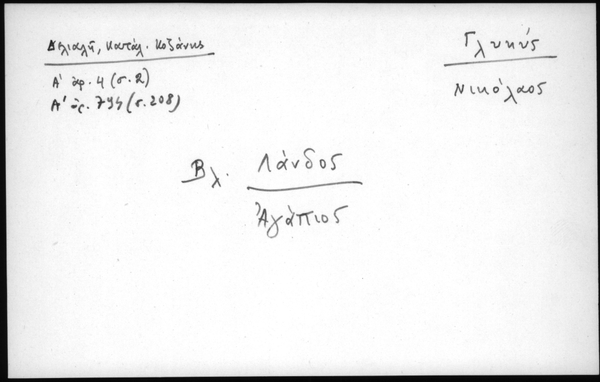 Δελιαλῆ, Κατάλ. Κοζάνης
Α' ἀρ. 4 (σ. 2)
Α' ἀρ. 794 (σ. 208)
Γλυκύς
Νικόλαος
Βλ. Λάνδος
Ἀγάπιος